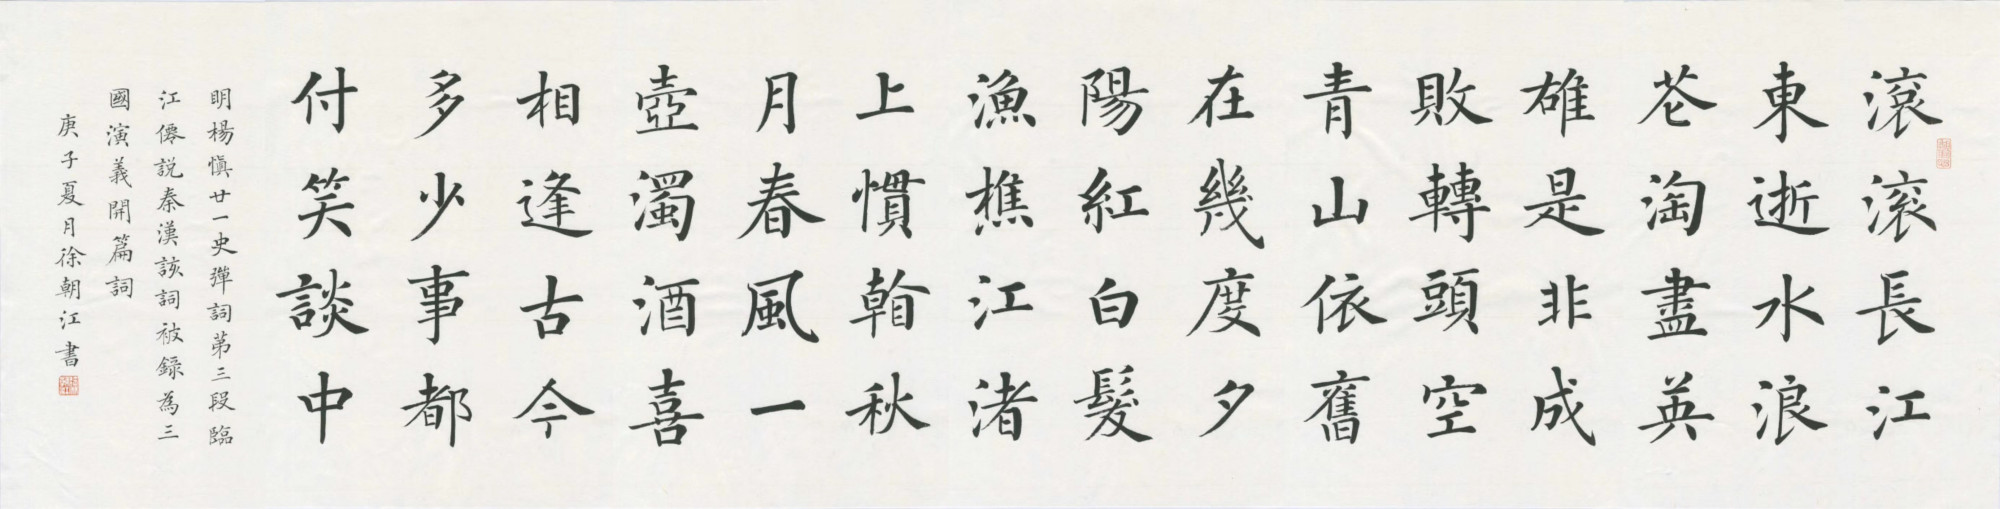 滾滚長江
東逝水浪
花淘盡英
雄是非成
敗轉頭空
青山依舊
在幾度夕
陽紅白髮
漁樵江渚
上慣看秋
月春風一
壺濁酒喜
相逢古今
多少事都
付笑談中
明楊慎廿一史彈詞第三段臨
江僊説秦漢該詞被録為三
國演義開篇詞
庚子夏月徐朝江書